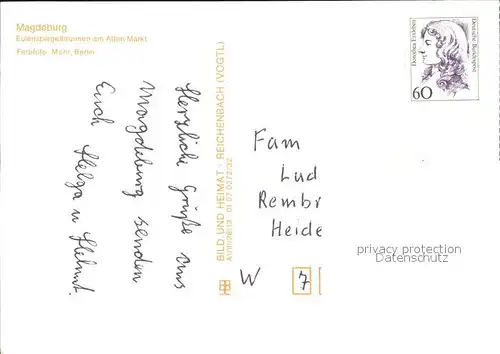 Magdeburg
Eulenspiegelbrunnen am Alten Markt
Farbfoto: Mohr, Berlin
Herzliche Grüße aus
Magdeburg senden
Euch Helga u Helmut.
BILD UND HEIMAT · REICHENBACH (VOGTL)
A1/III/26/13 01 07 0372/32
Dorothea Erxleben
Deutsche Bundespost
60
Fam
Lud
Rembr
Heide
W 7
privacy protection
Datenschutz